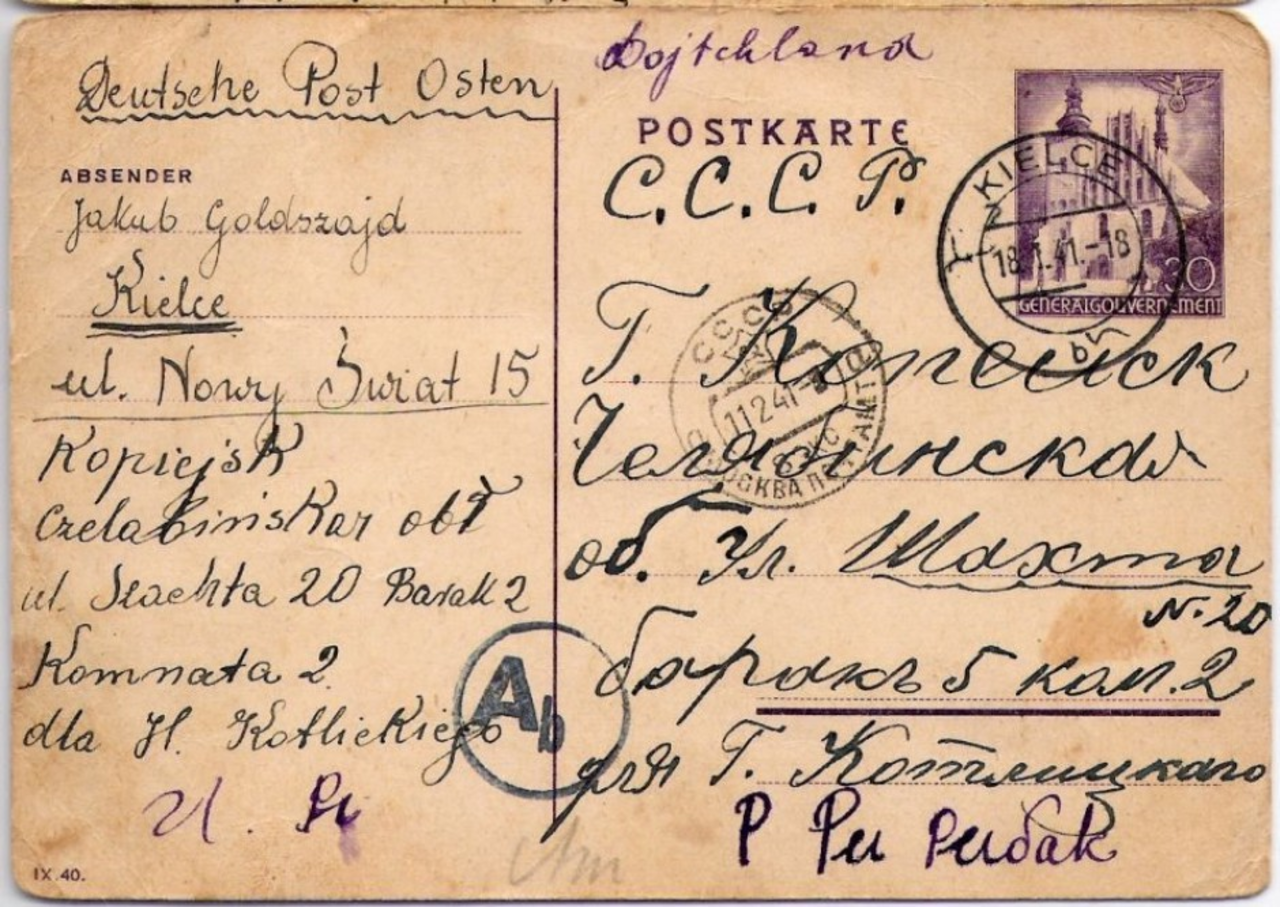 Deutsche Post Osten
ABSENDER
Jakub Goldszajd
Kielce
ul. Nowy Świat 15
Kopiejsk
Czelabińskar obł
ul. Szachta 20 Barak 2
Komnata 2.
dla H. Kotlickiego
IX.40.
Dojtchland
POSTKARTE
С.С.С.Р.
KIELCE
18.1.41.-18
30
GENERALGOUVERNEMENT
Г. Копейск
СССР
11 2 41
МОСКВА ПОЧТАМТ
Челябинская
об. Ул. Шахта
N. 20
баракъ 5 ком. 2
для Г. Котлицкаго
Ab